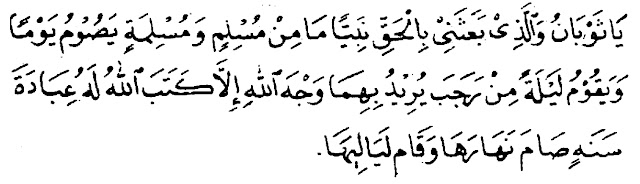 يَا ثَوْبَانُ وَالَّذِىْ بَعَثَنِىْ بِالْحَقِّ نَبِيًّا مَا مِنْ مُسْلِمٍ وَمُسْلِمَةٍ يَصُوْمُ يَوْمًا
وَيَقُوْمُ لَيْلَةً مِنْ رَجَبَ يُرِيْدُ بِهِمَا وَجْهَ اللهِ إِلَّا كَتَبَ اللهُ لَهُ عِبَادَةَ
سَنَةٍ صَامَ نَهَارَهَا وَقَامَ لَيَالِيَهَا.